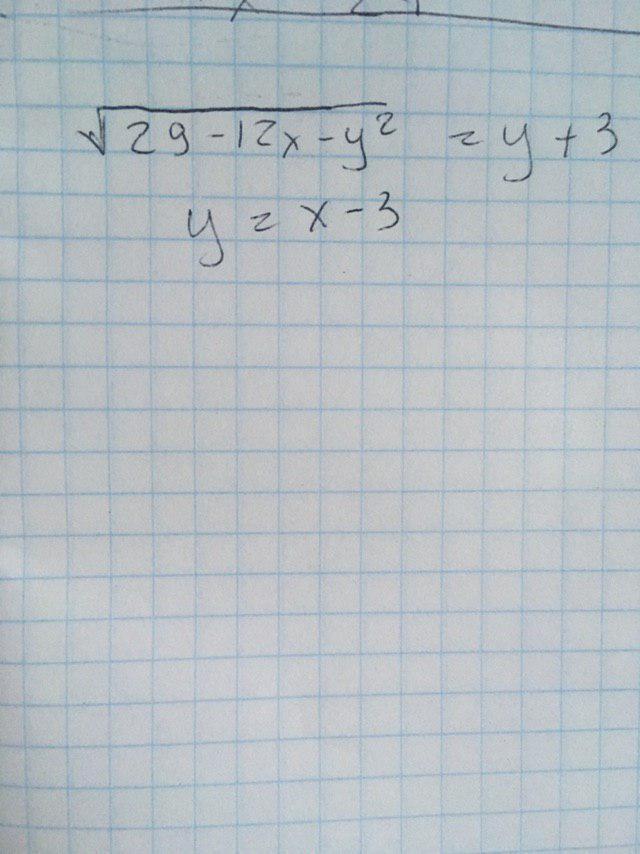 √29-12x-y² = y+3
y = x-3